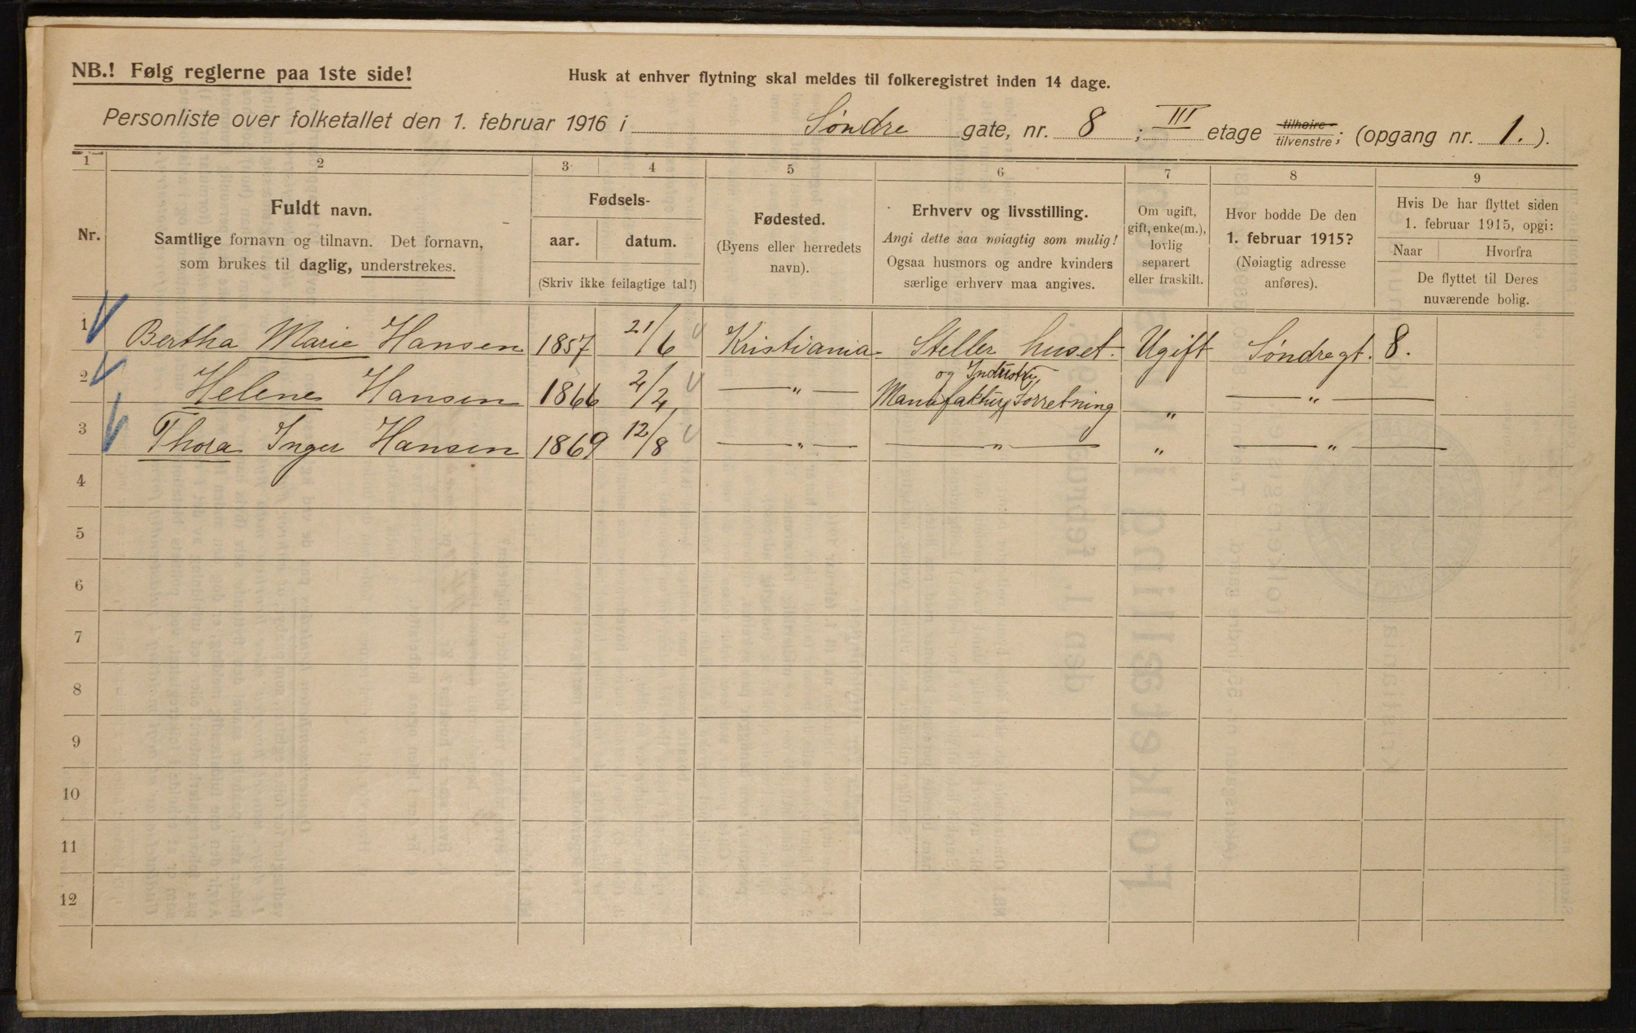 NB.! Følg reglerne paa 1ste side!
Husk at enhver flytning skal meldes til folkeregistret inden 14 dage.
Personliste over folketallet den 1. februar 1916 i Søndre gate, nr. 8 ; III etage tilhøire tilvenstre; (opgang nr. 1.).
1 2 3 4 5 6 7 8 9
Nr.
Fuldt navn.
Samtlige fornavn og tilnavn. Det fornavn,
som brukes til daglig, understrekes.
Fødsels-
aar. datum.
(Skriv ikke feilagtige tal!)
Fødested.
(Byens eller herredets
navn).
Erhverv og livsstilling.
Angi dette saa nøiagtig som mulig!
Ogsaa husmors og andre kvinders
særlige erhverv maa angives.
Om ugift,
gift, enke(m.),
lovlig
separert
eller fraskilt.
Hvor bodde De den
1. februar 1915?
(Nøiagtig adresse
anføres).
Hvis De har flyttet siden
1. februar 1915, opgi:
Naar Hvorfra
De flyttet til Deres
nuværende bolig.
1 Bertha Marie Hansen 1857 21/6 Kristiania Steller huset. Ugift Søndregt. 8.
2 Helene Hansen 1866 2/4 — " — og Industry Manufaktur Forretning " — " —
3 Thora Inger Hansen 1869 12/8 — " — — " — " — " —
4
5
6
7
8
9
10
11
12